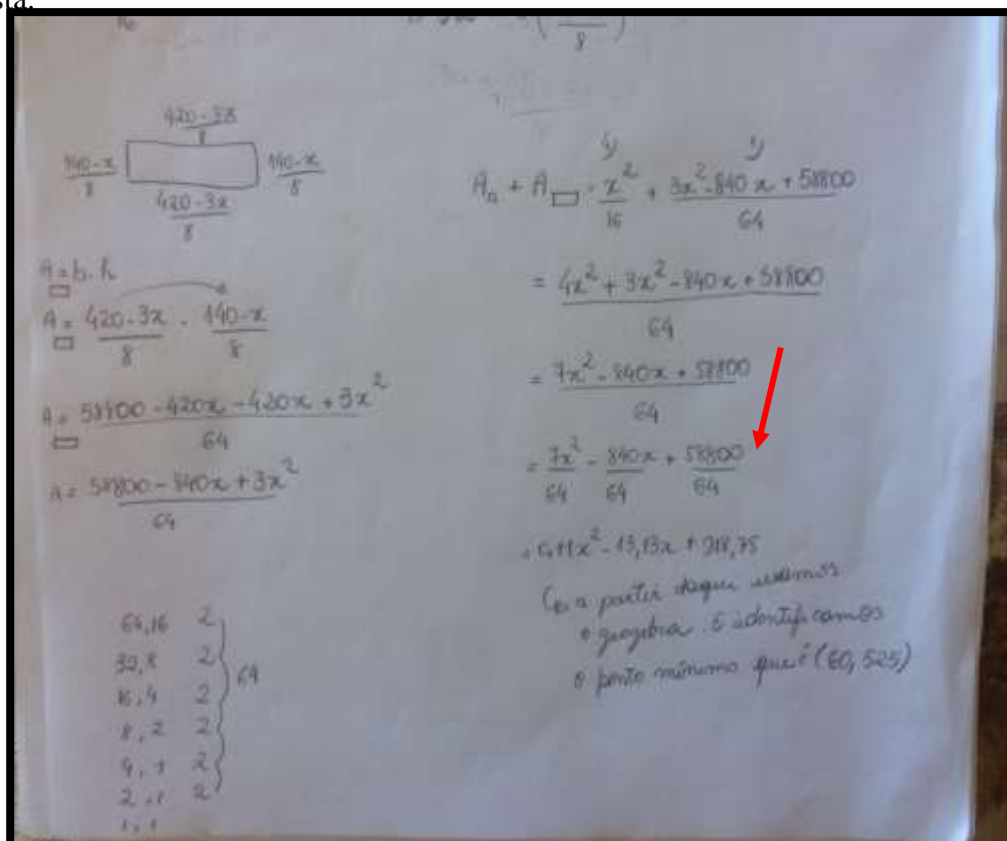 8
420-3x
8
140-x
8
140-x
8
420-3x
8
A = b.h
A = 420-3x . 140-x
8 8
A = 58800 - 420x - 420x + 3x²
64
A = 58800 - 840x + 3x²
64
64,16 2
32,8 2
16,4 2
8,2 2
4,1 2
2,1 2
1,1
64
x² + 3x² - 840x + 58800
16 64
= 4x² + 3x² - 840x + 58800
64
= 7x² - 840x + 58800
64
= 7x² - 840x + 58800
64 64 64
x² - 13,13x + 918,75
a partir daqui usamos
o geogebra. E identificamos
o ponto mínimo que é (60, 525)